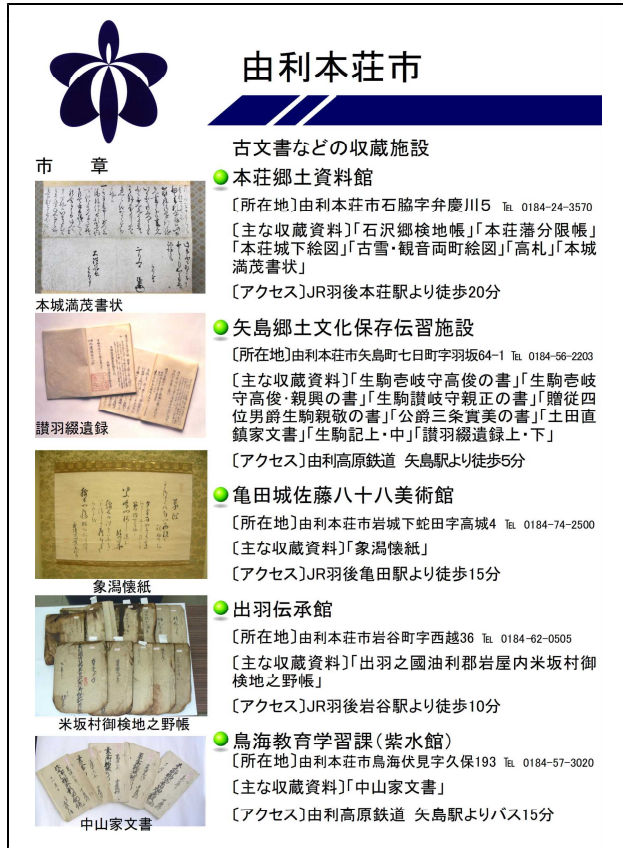 由利本荘市
市 章
古文書などの収蔵施設
本荘郷土資料館
〔所在地〕由利本荘市石脇字弁慶川5 ℡ 0184-24-3570
〔主な収蔵資料〕「石沢郷検地帳」「本荘藩分限帳」
「本荘城下絵図」「古雪・観音両町絵図」「高札」「本城
満茂書状」
〔アクセス〕JR羽後本荘駅より徒歩20分
本城満茂書状
矢島郷土文化保存伝習施設
〔所在地〕由利本荘市矢島町七日町字羽坂64-1 ℡ 0184-56-2203
〔主な収蔵資料〕「生駒壱岐守高俊の書」「生駒壱岐
守高俊・親興の書」「生駒讃岐守親正の書」「贈従四
位男爵生駒親敬の書」「公爵三条實美の書」「土田直
鎮家文書」「生駒記上・中」「讃羽綴遺録上・下」
〔アクセス〕由利高原鉄道 矢島駅より徒歩5分
讃羽綴遺録
亀田城佐藤八十八美術館
〔所在地〕由利本荘市岩城下蛇田字高城4 ℡ 0184-74-2500
〔主な収蔵資料〕「象潟懐紙」
〔アクセス〕JR羽後亀田駅より徒歩15分
象潟懐紙
出羽伝承館
〔所在地〕由利本荘市岩谷町字西越36 ℡ 0184-62-0505
〔主な収蔵資料〕「出羽之國油利郡岩屋内米坂村御
検地之野帳」
〔アクセス〕JR羽後岩谷駅より徒歩10分
米坂村御検地之野帳
鳥海教育学習課（紫水館）
〔所在地〕由利本荘市鳥海伏見字久保193 ℡ 0184-57-3020
〔主な収蔵資料〕「中山家文書」
〔アクセス〕由利高原鉄道 矢島駅よりバス15分
中山家文書